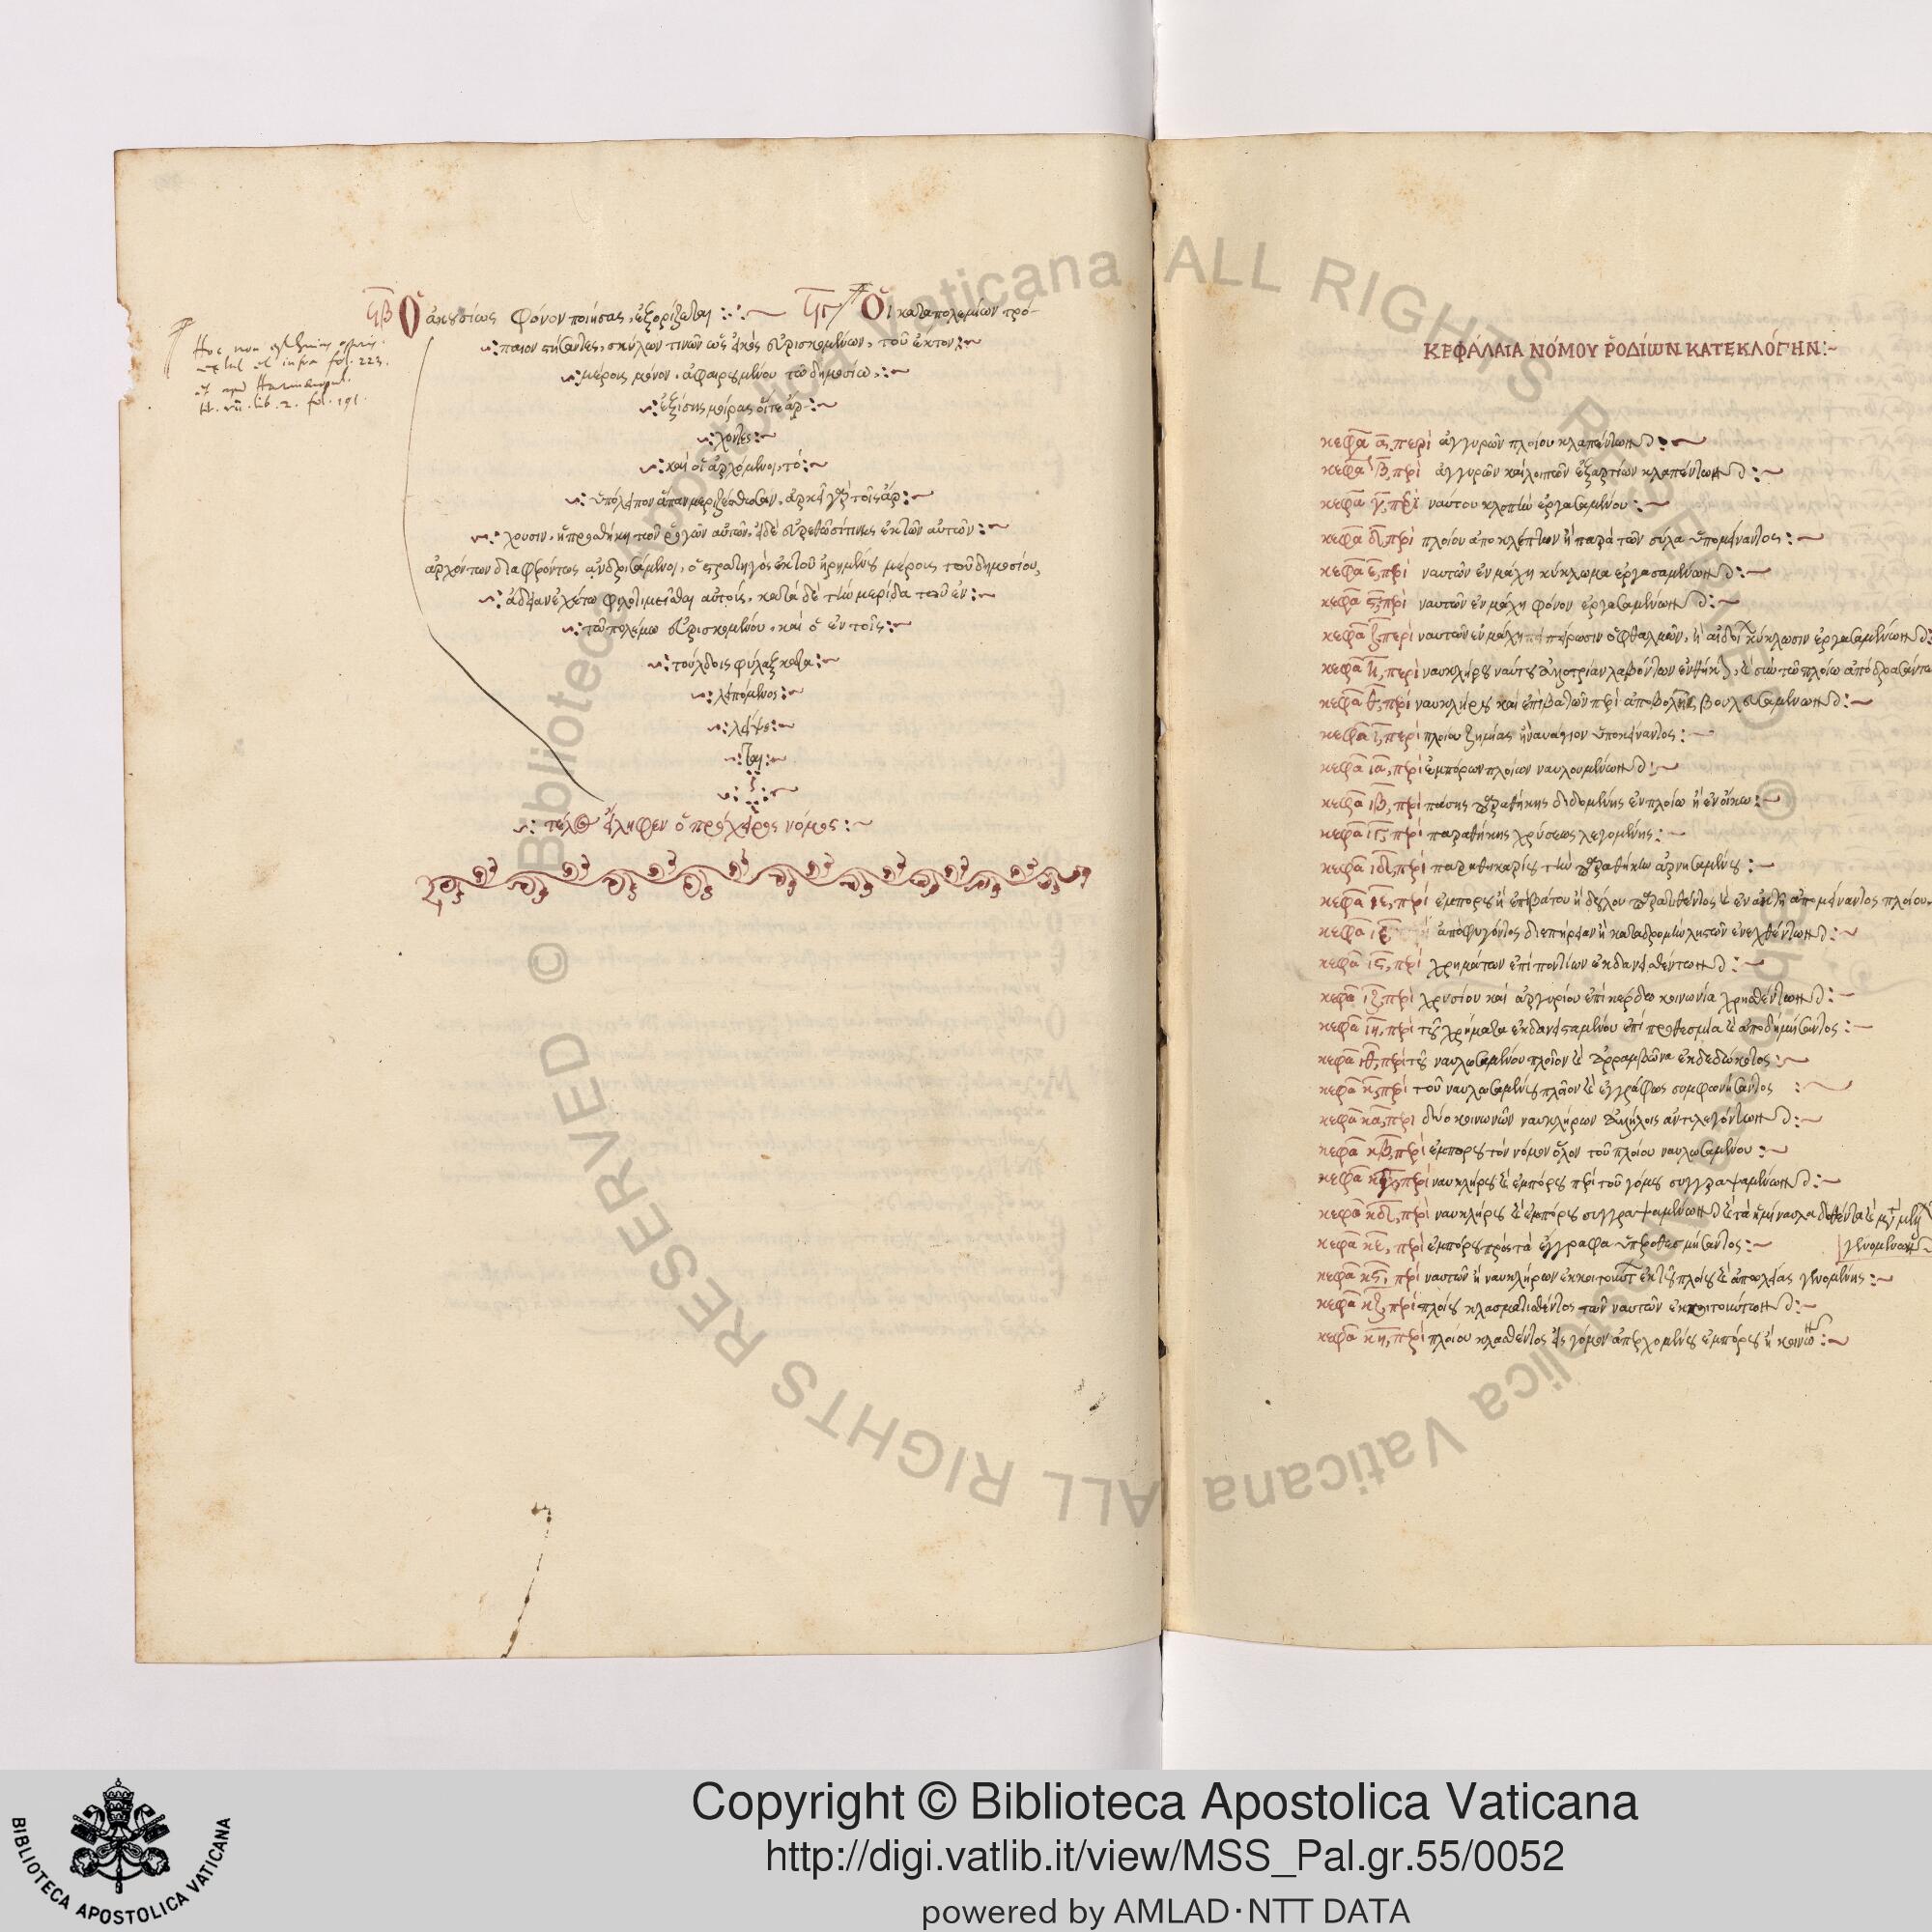 ϟβ Ὁ ἀκουσίως φόνον ποιήσας, ἐξορίζεται :·:~ ϟγ Οἱ κατα πολεμίων τρό-
παιον στήσαντες, σκύλων τινῶν ὡς εἰκὸς εὑρισκομένων, τοῦ ἕκτου
μέρους μόνου ἀφαιρουμένου τῶ δημοσίω,
ἐξίσης μοίρας οἵτε ἄρ-
χοντες
καὶ οἱ ἀρχόμενοι, τὸ
ὑπόλειπον ἅπαν μεριζέσθωσαν, ἀρκεῖ γὰρ τοῖς ἄρ-
χουσιν, ἡ προσθήκη τῶν ῥογῶν αὐτῶν, εἰ δὲ εὑρεθῶσί τινες ἐκ τῶν αὐτῶν
ἀρχόντων διαφερόντως ἀνδρισάμενοι, ὁ στρατηγὸς ἐκ τοῦ εἰρημένου μέρους τοῦ δημοσίου,
ἄδειαν ἐχέτω φιλοτιμεῖσθαι αὐτοῖς, κατὰ δὲ τὴν μερίδα τοῦ ἐν
τῶ πολέμω εὑρισκομένου, καὶ ὁ ἐν τοῖς
τούλδοις φύλαξ κατα
λειπόμενος
λήψε
ται
τέλος εἴληφεν ὁ πρόχειρος νόμος :~
H. vii. lib. 2. fol. 191.
ΚΕΦΆΛΑΙΑ ΝΌΜΟΥ ῬΟΔΊΩΝ ΚΑΤΕΚΛΌΓΗΝ:~
κεφα α, περὶ ἀγγυρῶν πλοίου κλαπέντων :~
κεφα β, περὶ ἀγγυρῶν καὶ λοιπῶν ἐξαρτίων κλαπέντων :~
κεφα γ, περὶ ναύτου κλοπὴν ἐργασαμένου :~
κεφα δ, περὶ πλοίου ἀπο κλεπτῶν ἢ παρὰ τῶν σύλα ὑπομείναντος :~
κεφα ε, περὶ ναυτῶν ἐν μάχη κύκλωμα ἐργασαμένων :~
κεφα ς, περὶ ναυτῶν ἐν μάχη φόνον ἐργασαμένων :~
κεφα ζ, περὶ ναυτῶν ἐν μάχη πήρωσιν ὀφθαλμῶν, ἢ αἰδοί κύκλωσιν ἐργασαμένων :
κεφα η, περὶ ναυκλήρου ναύτου ἀλλοτρίαν λαβόντων ἐνθήκην, καὶ σὺν τῶ πλοίω ἀποδρασάντω
κεφα θ, περὶ ναυκλήρου καὶ ἐπιβατῶν περὶ ἀποβολῆς βουλευσαμένων :~
κεφα ι, περὶ πλοίου ζημίας ἢ ναυάγιον ὑπομείναντος :~
κεφα ια, περὶ ἐμπόρων πλοίων ναυλουμένων :~
κεφα ιβ, περὶ πάσης παραθήκης διδομένης ἐν πλοίω ἢ ἐν οἴκω :~
κεφα ιγ, περὶ παραθήκης χρύσεως λεγομένης :~
κεφα ιδ, περὶ παραθηκαρίου τὴν παραθήκην ἀρνησαμένου :~
κεφα ιε, περὶ ἐμπόρου ἢ ἐπιβάτου ἢ δούλου παρατεθέντος καὶ ἐν ἀκτῆ ἀπομείναντος πλοίου
ἀποφυγόντος διεπήρειαν ἢ καταδρομὴν ληστῶν ἐνεχθέντων :~
κεφα ις, περὶ χρημάτων ἐπιποντίων ἐκδανεισθέντων :~
κεφα ιζ, περὶ χρυσίου καὶ ἀργυρίου ἐπικερδῶ κοινωνία χρησθέντων :~
κεφα ιη, περὶ τοῦ χρήματα ἐκδανεισαμένου ἐπι προθεσμία καὶ ἀποδημήσαντος :~
κεφα ιθ, περὶ τοῦ ναυλωσαμένου πλοῖον καὶ ἀρραμβῶνα ἐκδεδωκότος :~
κεφα κ, περὶ τοῦ ναυλωσαμένου πλοῖον καὶ ἐγγράφως συμφωνήσαντος :~
κεφα κα, περὶ δύο κοινωνῶν ναυκλήρων ἀλλήλοις ἀντιλεγόντων :~
κεφα κβ, περὶ ἐμπόρου τὸν νόμον ὅλον τοῦ πλοίου ναυλωσαμένου :~
κεφα κγ, περὶ ναυκλήρου καὶ ἐμπόρου περὶ τοῦ γόμου συγγραψαμένων :~
κεφα κδ, περὶ ναυκλήρου καὶ ἐμπόρου συγγραψαμένων καὶ τὰ ἡμίναυλα δοθέντα καὶ
γενομένων
κεφα κε, περὶ ἐμπόρου πρὸς τὰ ἔγγραφα ὑπερθεσμήσαντος :~
κεφα κς, περὶ ναυτῶν ἢ ναυκλήρων ἐκκοιτούντ ἐκ τοῦ πλοίου καὶ ἀπωλείας γενομένης :~
κεφα κζ, περὶ πλοίου κλασματισθέντος τῶν ναυτῶν ἐκκοιτούντων :~
κεφα κη, περὶ πλοίου κλασθέντος εἰς γόμον ἀπερχομένου ἐμπόρου ἢ κοινων :~
Copyright © Biblioteca Apostolica Vaticana
http://digi.vatlib.it/view/MSS_Pal.gr.55/0052
powered by AMLAD·NTT DATA
BIBLIOTECA APOSTOLICA VATICANA
© Biblioteca Apostolica Vaticana ALL RIGHTS RESERVED
© Biblioteca Apostolica Vaticana ALL RIGHTS RESERVED